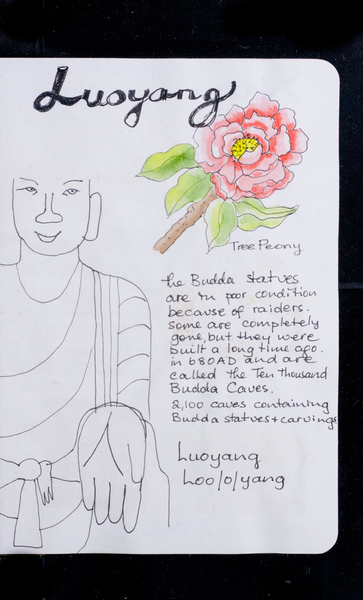 Luoyang
Tree Peony
the Budda statues
are in poor condition
because of raiders.
some are completely
gone, but they were
built a long time ago.
in 680AD and are
called the Ten thousand
Budda Caves.
2,100 caves containing
Budda statues + carvings
Luoyang
Loo/o/yang